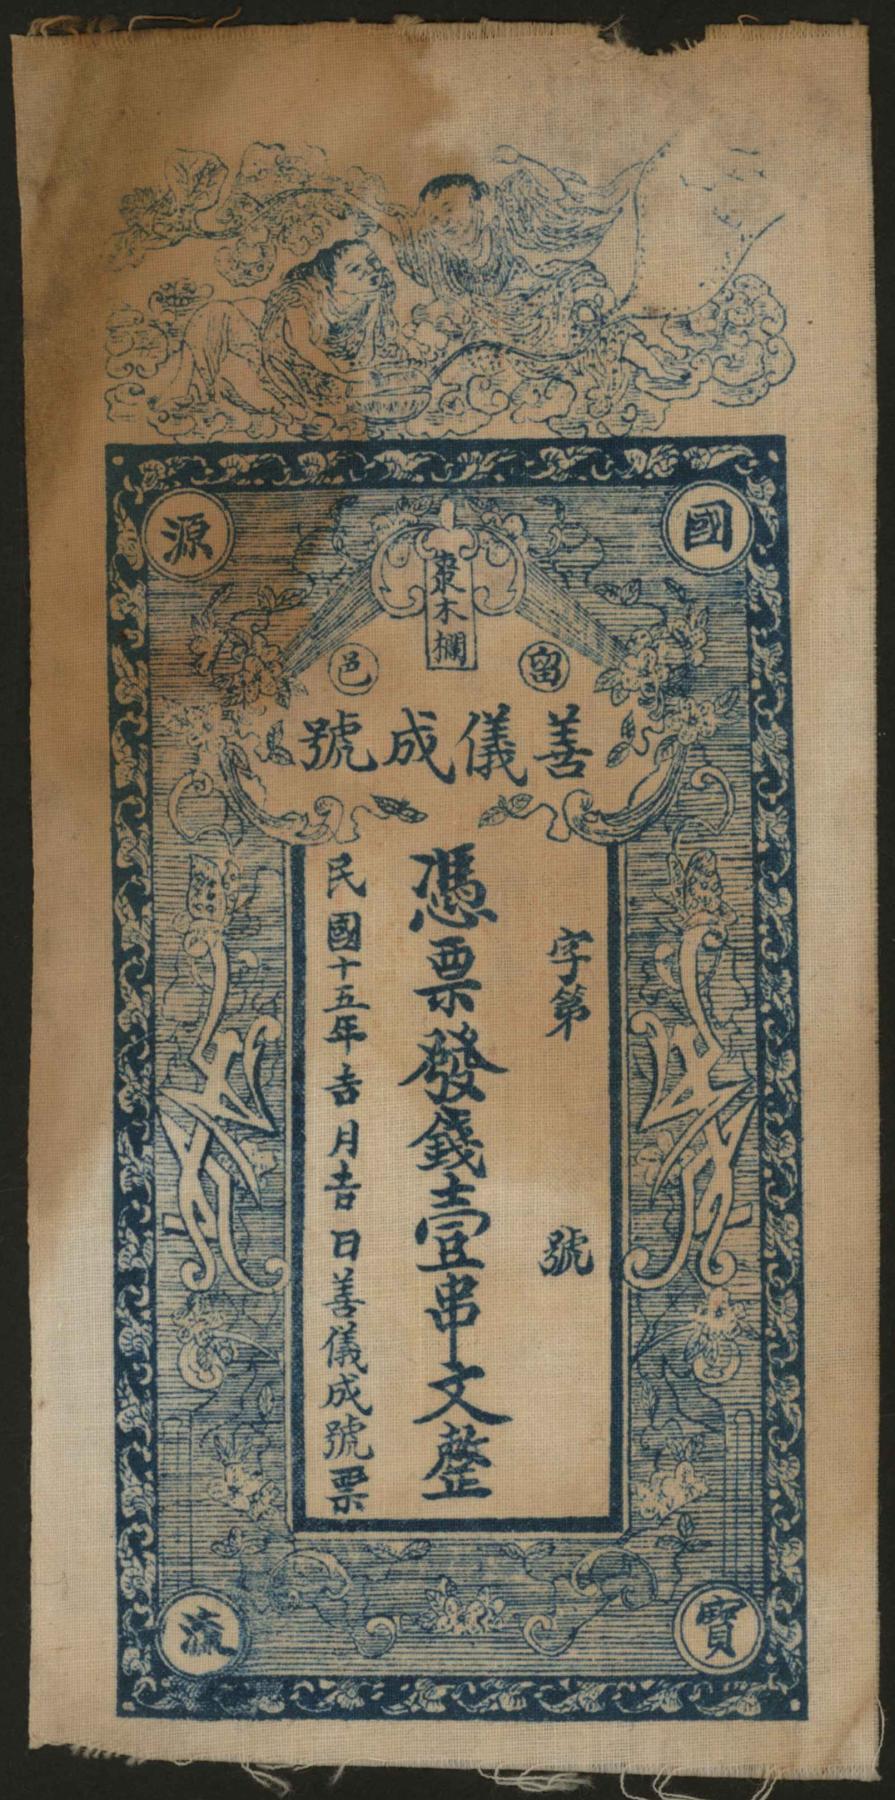 國
源
棗木欄
留邑
善儀成號
字第 號
慿票發錢壹串文整
民國十五年吉月吉日善儀成號票
寶
流